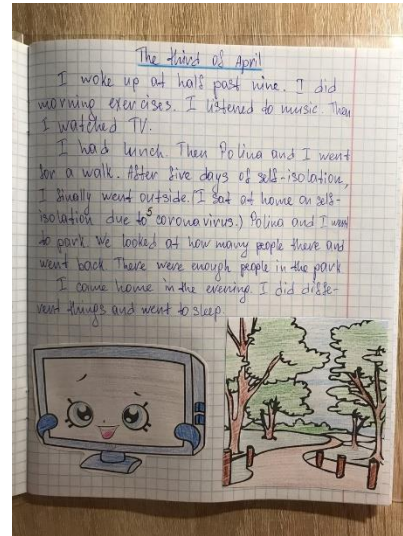 The third of April
I woke up at half past nine. I did
morning exercises. I listened to music. Then
I watched TV.
I had lunch. Then Polina and I went
for a walk. After five days of self-isolation,
I finally went outside. (I sat at home on self-
isolation due to coronavirus.) Polina and I went
to park. We looked at how many people there and
went back. There were enough people in the park.
I came home in the evening. I did diffe-
rent things and went to sleep.